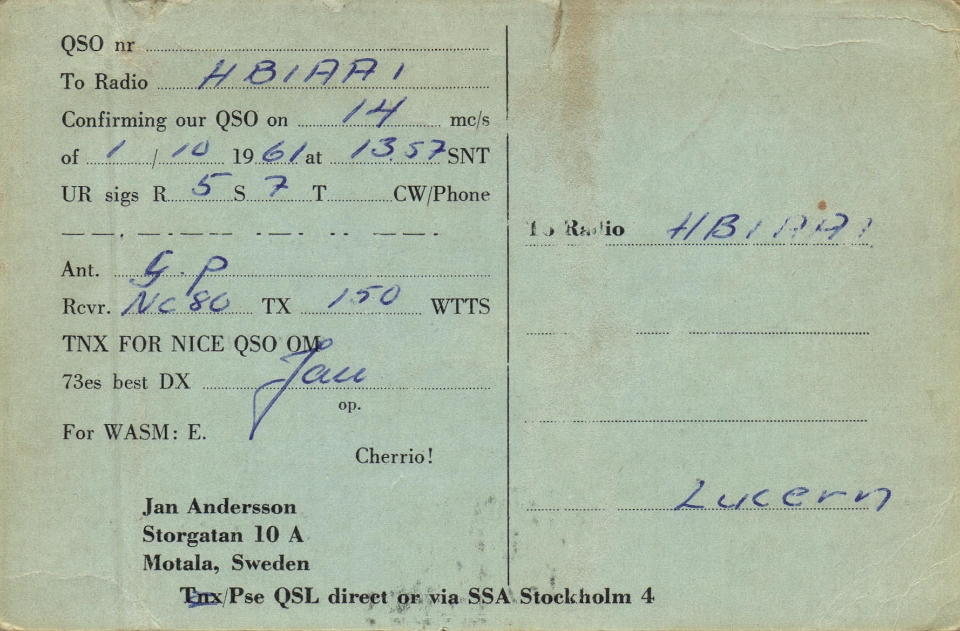 QSO nr
To Radio HB1AAI
Confirming our QSO on 14 mc/s
of 1/10 1961 at 13.57 SNT
UR sigs R 5 S 7 T CW/Phone
— — . — . — — — — . — . . — — .
Ant. G.P
Rcvr. NC80 TX 150 WTTS
TNX FOR NICE QSO OM
73es best DX Jan
op.
For WASM: E.
Cherrio!
Jan Andersson
Storgatan 10 A
Motala, Sweden
Tnx/Pse QSL direct or via SSA Stockholm 4
To Radio HB1AAI
Lucern